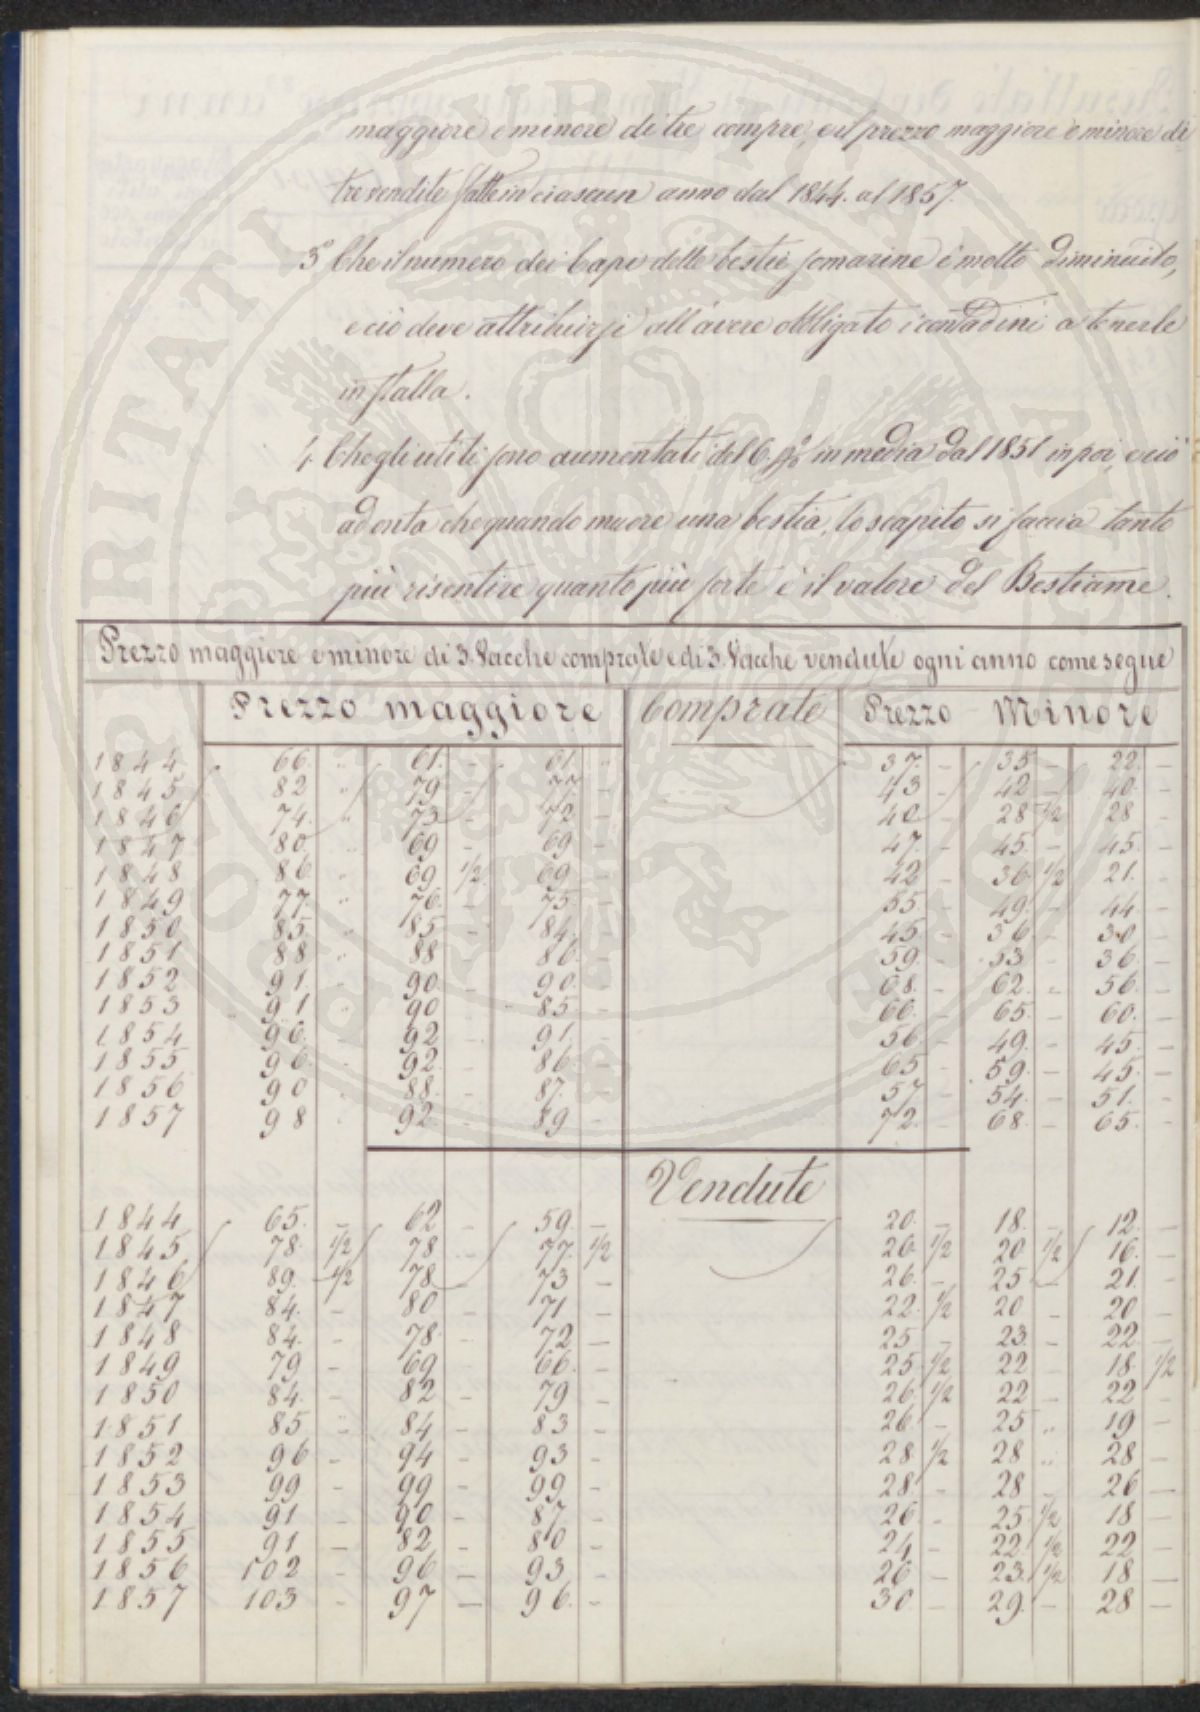 maggiore e minore di tre compre, e il prezzo maggiore e minore di
tre vendite fatte in ciascun anno dal 1844. al 1857.
3° Che il numero dei Capi delle bestie somarine è molto diminuito,
e ciò deve attribuirsi all'avere obbligato i contadini a tenerle
in stalla.
4. Che gli utili sono aumentati del 6. p% in media dal 1851 in poi, e ciò
ad onta che quando muore una bestia, lo scapito si faccia tanto
più risentire quanto più forte è il valore del Bestiame.
Prezzo maggiore e minore di 3. Vacche comprate e di 3. Vacche vendute ogni anno come segue
Prezzo maggiore Comprate Prezzo Minore
1844 66. " 61. - 61. " 37. - 35 - 22. -
1845 82 " 79 - 77 - 43 - 42 - 40. -
1846 74. " 73 - 72. - 40. - 28 1/2 28 -
1847 80. " 69 - 69 - 47. - 45. - 45. -
1848 86. " 69 1/2 69 - 42 - 36 1/2 21. -
1849 77. " 76. - 75. - 55 - 49. - 44 -
1850 85. " 85 - 84. - 45 - 36 - 30 -
1851 88 " 88 - 86. - 59. - 53 - 36. -
1852 91. " 90. - 90. - 68. - 62. - 56. -
1853 91 " 90 - 85. - 66. - 65. - 60. -
1854 96. - 92 - 91. - 56. - 49. - 45. -
1855 96. - 92. - 86 - 65 - 59. - 45. -
1856 90 - 88. - 87. - 57. - 54. - 51. -
1857 98 - 92. - 89 - 72. - 68. - 65. -
Vendute
1844 65. - 62 - 59. - 20. - 18. - 12. -
1845 78. 1/2 78 - 77. 1/2 26. 1/2 20 1/2 16. -
1846 89. 1/2 78 - 73 - 26. - 25 - 21. -
1847 84. - 80 - 71 - 22. 1/2 20 - 20 -
1848 84. - 78. - 72 - 25 - 23. - 22 -
1849 79 - 69 - 66. - 25 1/2 22 - 18. 1/2
1850 84. - 82 - 79 - 26. 1/2 22 - 22 -
1851 85 " 84 - 83 - 26. - 25 " 19 -
1852 96 - 94 - 93 - 28 1/2 28 " 28 -
1853 99 - 99 - 99 - 28. - 28 - 26 -
1854 91 - 90 - 87. - 26 - 25. 1/2 18 -
1855 91 - 82 - 80 - 24 - 22 1/2 22 -
1856 102 - 96 - 93. - 26 - 23. 1/2 18 -
1857 103 - 97 - 96. - 30. - 29. - 28 -
PROSPERITATI PUBLICAE AUGENDAE